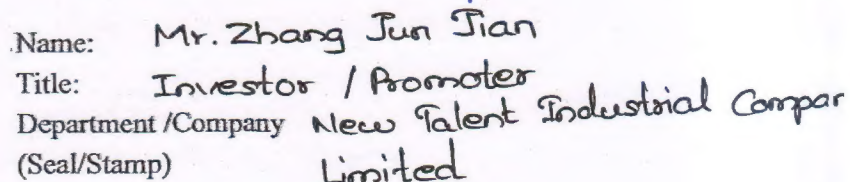 Name: Mr. Zhang Jun Jian
Title: Investor / Promoter
Department /Company New Talent Industrial Compar
(Seal/Stamp) Limited